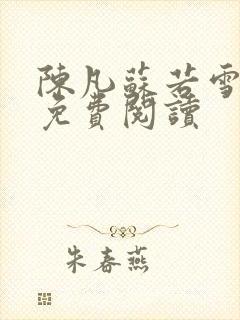 陳凡蘇若雪
免費閱讀
朱春燕